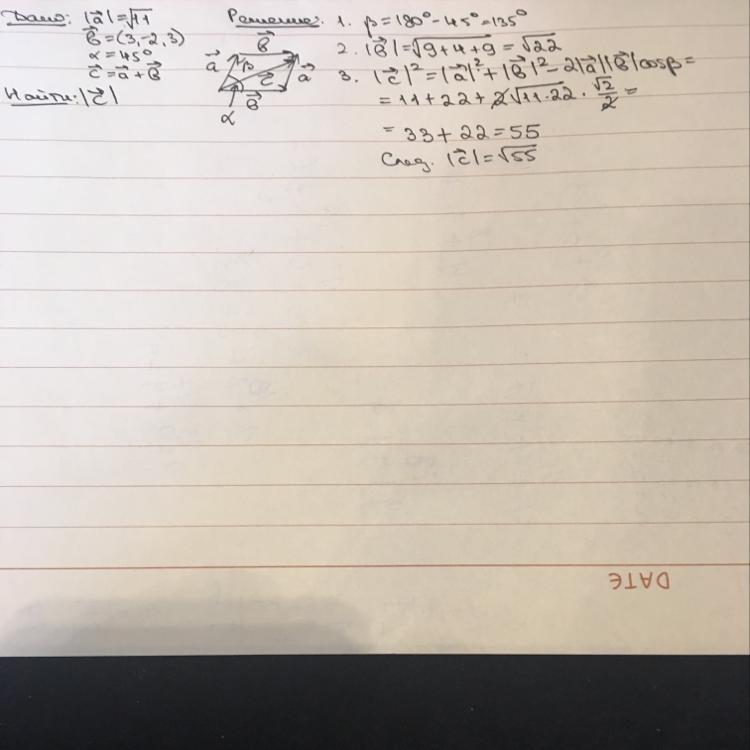 Дано: |a⃗| = √11
b⃗ = (3,-2,3)
α = 45°
c⃗ = a⃗ + b⃗
Найти: |c⃗|
b⃗
a⃗ β c⃗ a⃗
b⃗
α
Решение: 1. β = 180° - 45° = 135°
2. |b⃗| = √9+4+9 = √22
3. |c⃗|² = |a⃗|² + |b⃗|² - 2|a⃗||b⃗|cosβ =
= 11 + 22 + 2√11·22 · √2/2 =
= 33 + 22 = 55
След. |c⃗| = √55
DATE